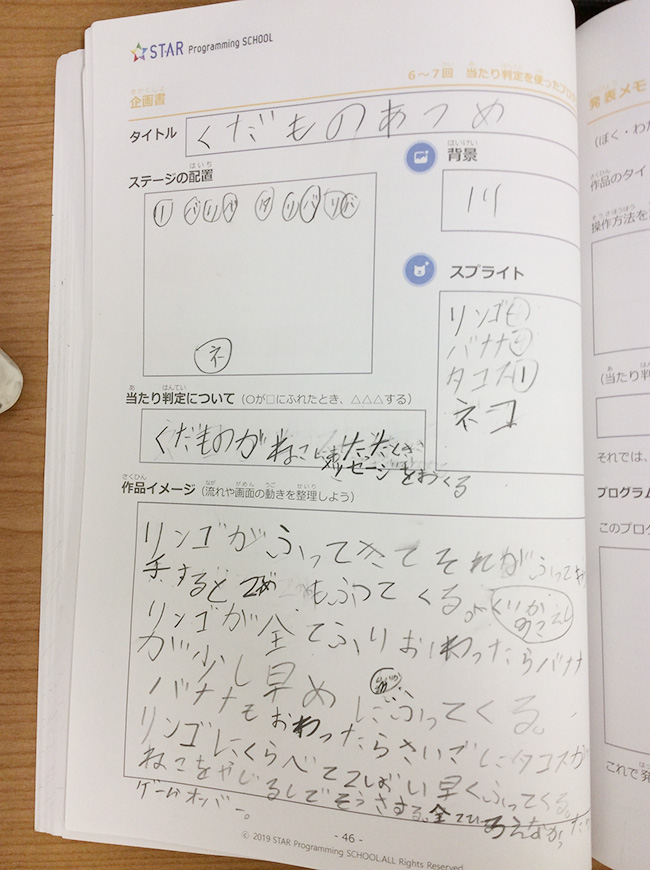 STAR Programming SCHOOL
6～7回 当たり判定を使ったプロ
企画書
タイトル くだものあつめ
ステージの配置
背景
川
ネ
スプライト
リンゴ
バナナ
タコス1
ネコ
当たり判定について（○が□にふれたとき、△△△する）
くだものがねこに
メッセージをおくる
作品イメージ（流れや画面の動きを整理しよう）
リンゴがふってきてそれがふって
手すると2こめもふってくる。
リンゴが全てふりおわったらバナナ
が少し早めにふってくる。
バナナもおわったらさいごにタコスが
リンゴにくらべて2ばい早くふってくる。
ねこをやじるしでそうさする。全て
ゲームオーバー。
- 46 -
© 2019 STAR Programming SCHOOL.ALL Rights Reserved
発表メモ
（ぼく・わた
作品のタイ
操作方法を
（当たり判
それでは、
プログラム
このプロク
これで発